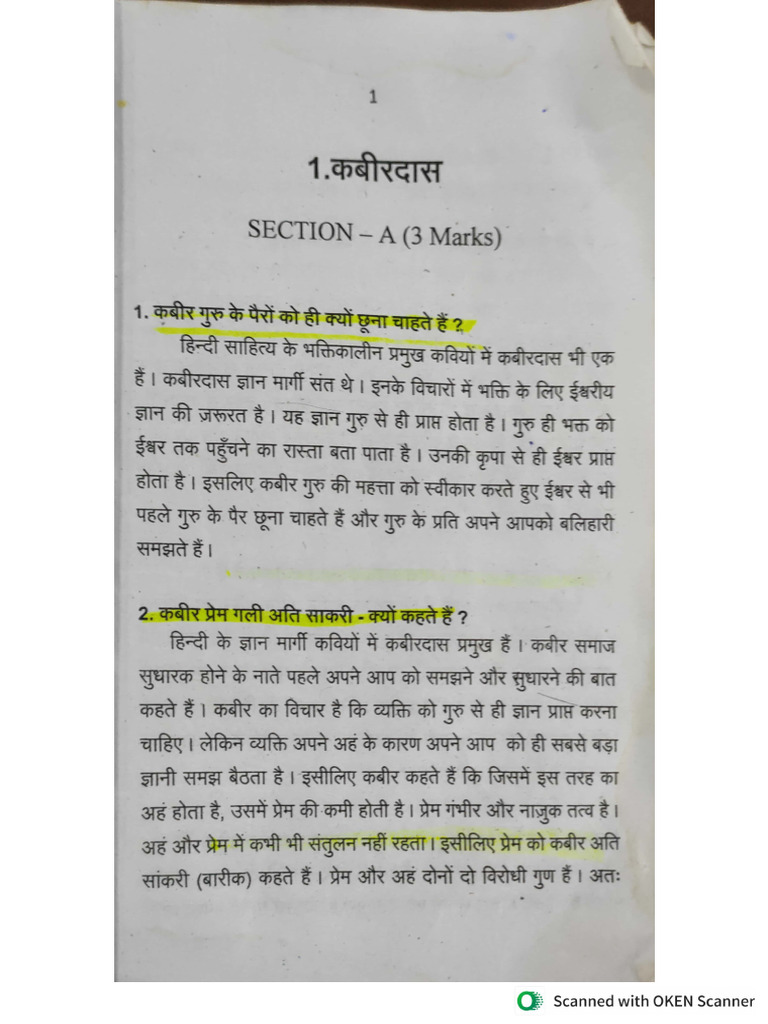 1
1.कबीरदास
SECTION – A (3 Marks)
1. कबीर गुरु के पैरों को ही क्यों छूना चाहते हैं ?
हिन्दी साहित्य के भक्तिकालीन प्रमुख कवियों में कबीरदास भी एक
हैं । कबीरदास ज्ञान मार्गी संत थे । इनके विचारों में भक्ति के लिए ईश्वरीय
ज्ञान की ज़रूरत है । यह ज्ञान गुरु से ही प्राप्त होता है । गुरु ही भक्त को
ईश्वर तक पहुँचने का रास्ता बता पाता है । उनकी कृपा से ही ईश्वर प्राप्त
होता है । इसलिए कबीर गुरु की महत्ता को स्वीकार करते हुए ईश्वर से भी
पहले गुरु के पैर छूना चाहते हैं और गुरु के प्रति अपने आपको बलिहारी
समझते हैं ।
2. कबीर प्रेम गली अति साकरी - क्यों कहते हैं ?
हिन्दी के ज्ञान मार्गी कवियों में कबीरदास प्रमुख हैं । कबीर समाज
सुधारक होने के नाते पहले अपने आप को समझने और सुधारने की बात
कहते हैं । कबीर का विचार है कि व्यक्ति को गुरु से ही ज्ञान प्राप्त करना
चाहिए । लेकिन व्यक्ति अपने अहं के कारण अपने आप को ही सबसे बड़ा
ज्ञानी समझ बैठता है । इसीलिए कबीर कहते हैं कि जिसमें इस तरह का
अहं होता है, उसमें प्रेम की कमी होती है । प्रेम गंभीर और नाज़ुक तत्व है ।
अहं और प्रेम में कभी भी संतुलन नहीं रहता । इसीलिए प्रेम को कबीर अति
सांकरी (बारीक) कहते हैं । प्रेम और अहं दोनों दो विरोधी गुण हैं । अतः
Scanned with OKEN Scanner